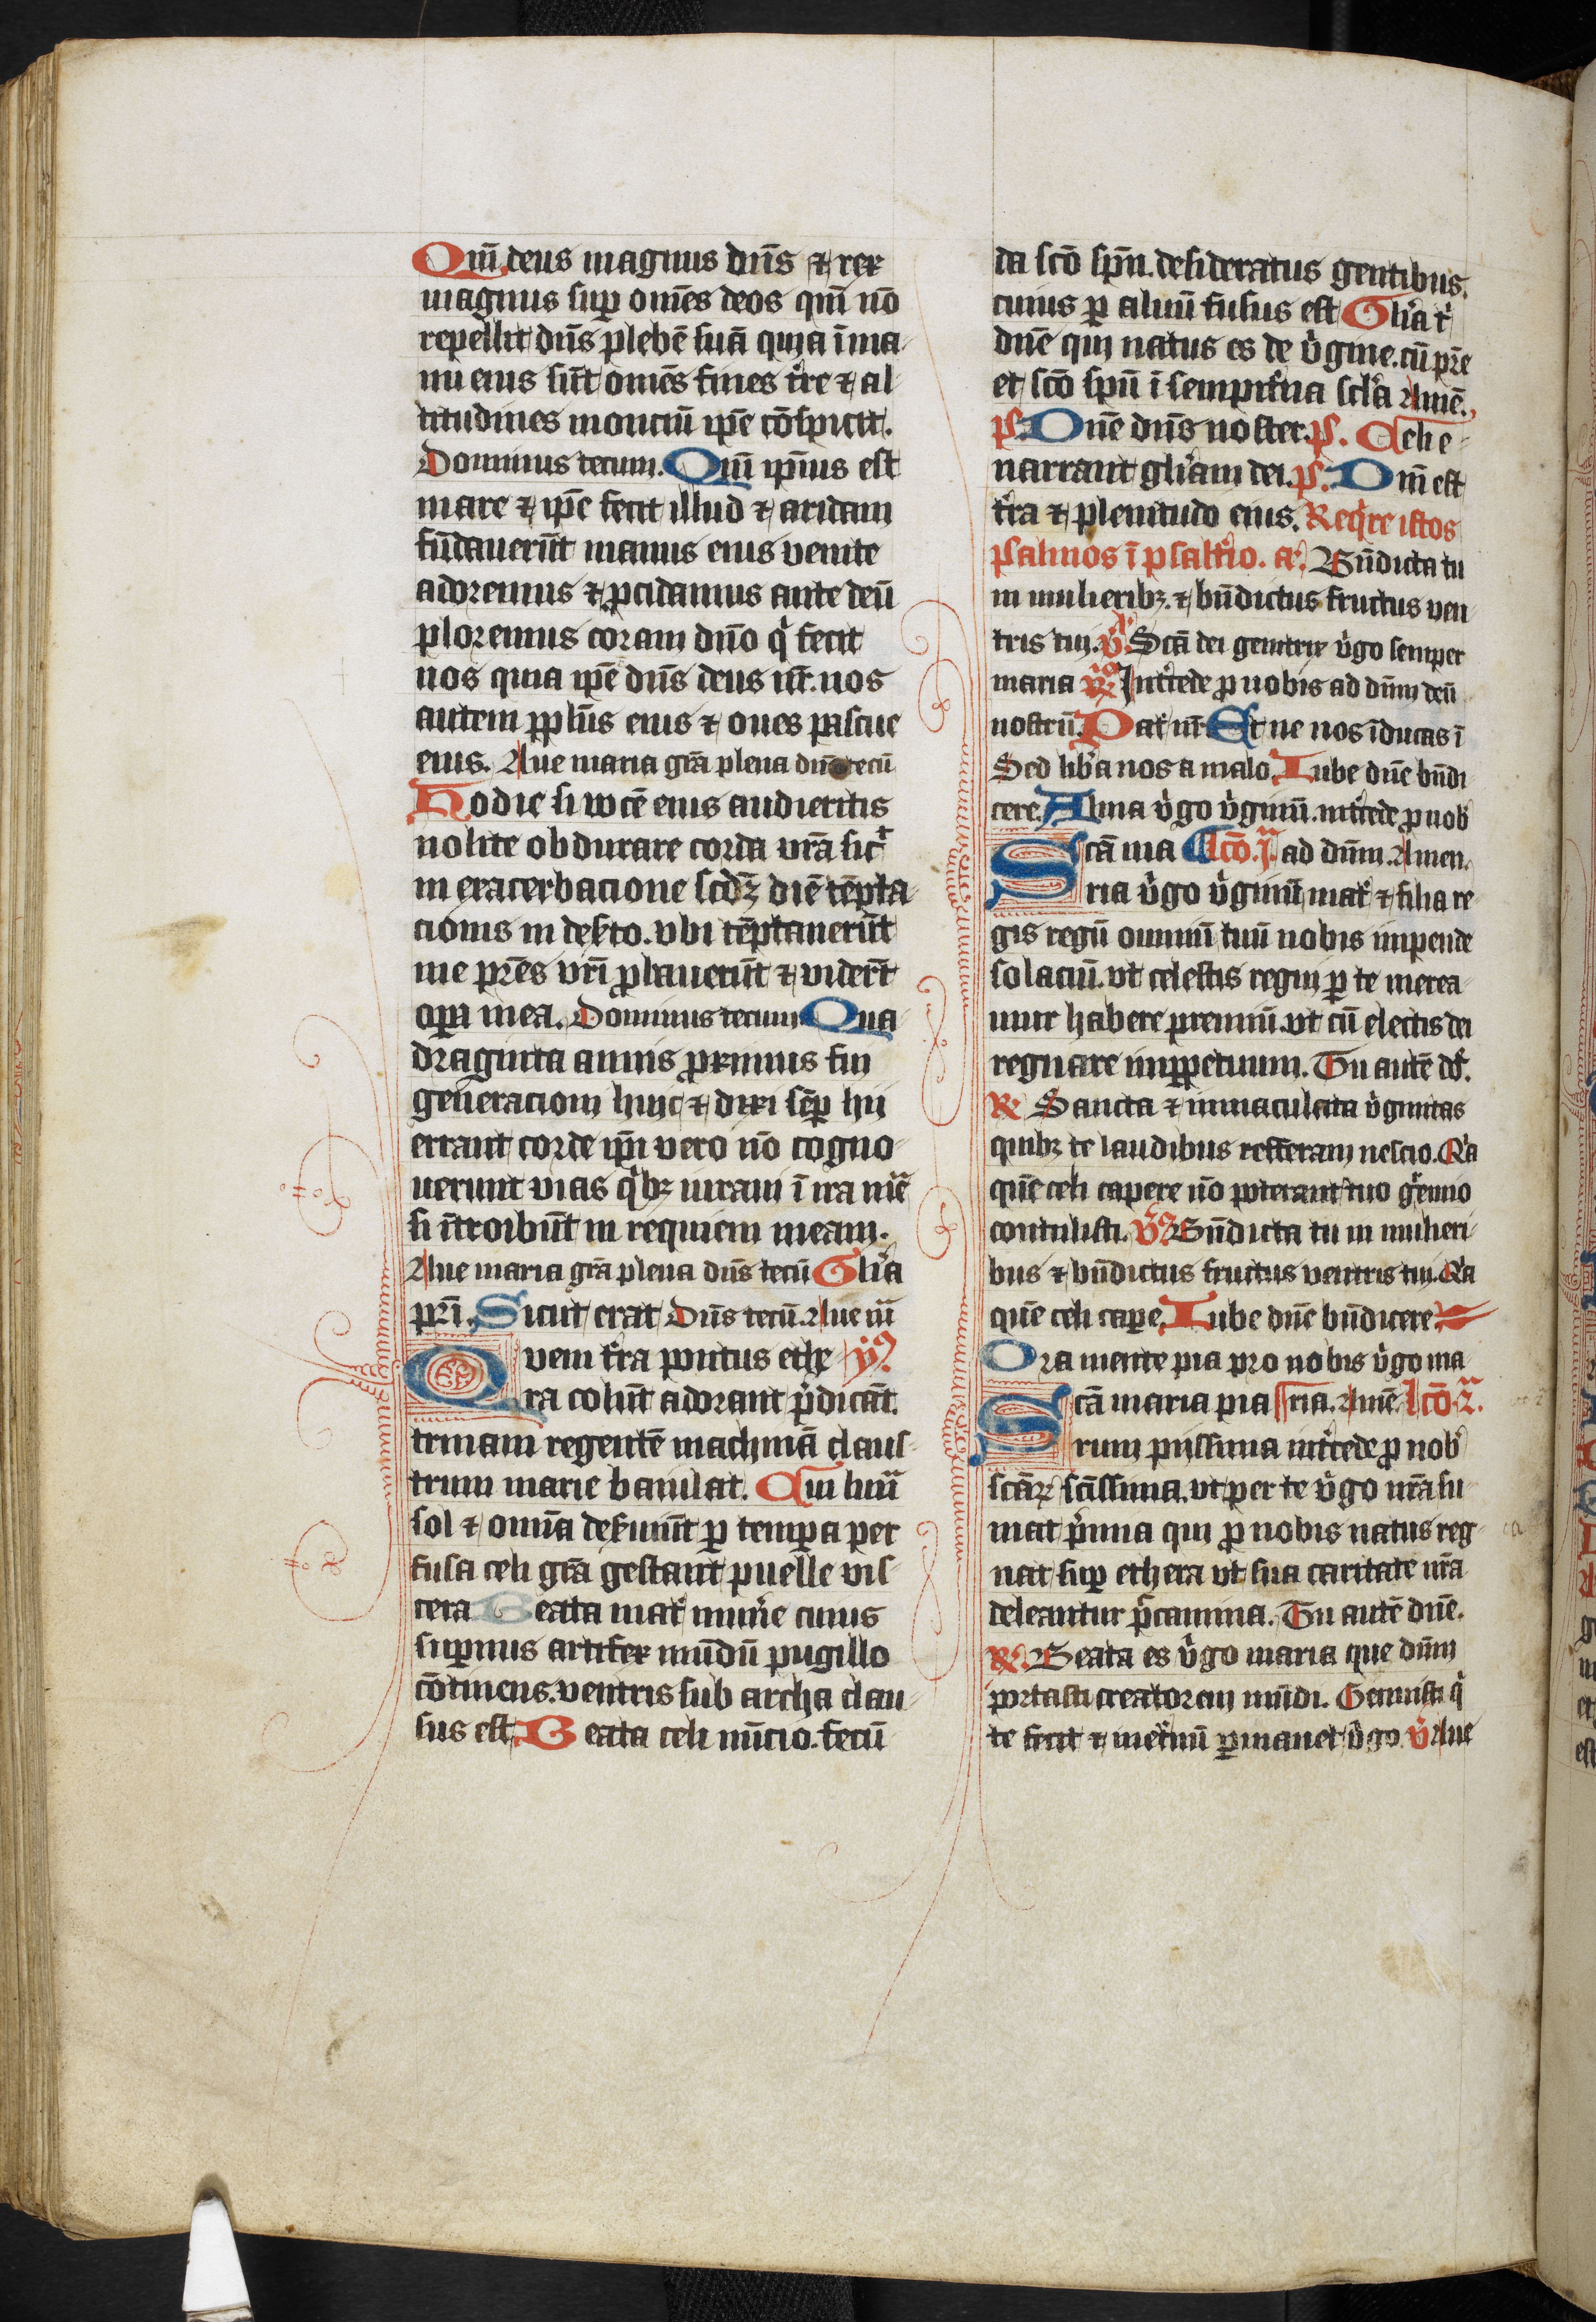 Qm̄ deus magnus dn̄s ⁊ rex
magnus sup̲ om̄es deos qm̄ nō
repellit dn̄s plebē suā quia ī ma-
nu eius sūt om̄es fines t͛re ⁊ al-
titudines monciū ip̄e cōspicit.
Dominus tecum. Qm̄ ip̄ius est
mare ⁊ ip̄e fecit illud ⁊ aridam
fūdauerūt manus eius venite
adoremus ⁊ p̲cidamus ante deū
ploremus coram dn̄o qⁱ fecit
nos quia ip̄e dn̄s deus nr̄. nos
autem pp̲lūs eius ⁊ oues pascue
eius. Aue maria grā plena dn̄s tecū
Hodie si vocē eius audieritis
nolite obdurare corda vrā sic͛
in exacerbacione scdꝫ diē tēpta-
cionis in deẜto. vbi tēptauerūt
me prēs vr̄i p̲bauerūt ⁊ viderūt
op̲a mea. Dominus tecum Qua-
draginta annis p̲ximus fui
generacioni huic ⁊ dixi sēp̲ hii
errant corde ip̄i vero nō cogno-
uerunt vias qⁱbꝫ iuraui ī ira mēa
si ītroibūt in requiem meam.
Aue maria grā plena dn̄s tecū Gl͛ia
pr̄i. Sicut erat Dn̄s tecū. Aue m̄
Quem t͛ra pontus ethe ym͛9
ra colūt adorant p͛dicāt.
trinam regentē machinā claus-
trum marie baiulat. Cui lunᵃ
sol ⁊ om̄ia deẜuiūt p̲ temp̲a per
fusa celi grā gestant puelle vis-
cera Beata mat͛ mun͛e cuius
sup̲nus artifex mūdū pugillo
cōtinens. ventris sub archa clau-
sus est. Beata celi nūcio. fecū
da scō sp̄u. desideratus gentibus.
cuius p̲ aluū fusus est Gl͛ia t͛
dn̄e qui natus es de v͛gine. cū pr̄e
et scō sp̄u ī sempit͛na scl͛a Amē.
ps. Dn̄e dn̄s noster. ps. Celi e-
narrant gl͛iam dei. ps. Dn̄i est
t͛ra ⁊ plenitudo eius. Req͛re istos
psalmos ī psalt͛io. a͛. Bn̄dicta tu
in mulieribꝫ. ⁊ bn̄dictus fructus ven
tris tui. v͛. Scā dei genitrix v͛go semper
maria R͛ Int͛cede p̲ nobis ad dn̄m deū
nostrū. Pat͛ nr̄ Et ne nos īducas ī
Sed lib͛a nos a malo. Iube dn̄e bn̄di
cere. Alma v͛go v͛ginū. int͛cede p̲ nob͛
Scā ma lcō. jᵃ. ad dn̄m. Amen.
ria v͛go v͛ginū mat͛ ⁊ filia re-
gis regū omniū tuū nobis impende
solaciū. vt celestis regni p̲ te merea-
mur habere premiū. vt cū electis dei
regnare inp̲petuum. Tu autē do͛.
R͛ Sancta ⁊ immaculata v͛ginitas
quibꝫ te laudibus refferam nescio. Qᵃ
quē celi capere nō poterant tuo g͛mio
contulisti. v͛9 Bn̄dicta tu in mulieri-
bus ⁊ bn̄dictus fructus ventris tui. Qᵃ
quē celi cape. Iube dn̄e bn̄dicere
Ora mente pia pro nobis v͛go ma
Scā maria pia ria. Amē. lcō. 2ᵃ.
rum piissima int͛cede p̲ nob͛
scāꝝ scīssima. vt per te v͛go nrā su-
mat p͛mina qui p̲ nobis natus reg-
nat sup̲ ethera vt sua caritate nrā
deleantur p͛ccamina. Tu autē dn̄e.
R͛. Beata es v͛go maria que dn̄m
portasti creatorem mūdi. Genuisti qⁱ
te fecit ⁊ inet͛nū p̲manet v͛go v͛ Aue